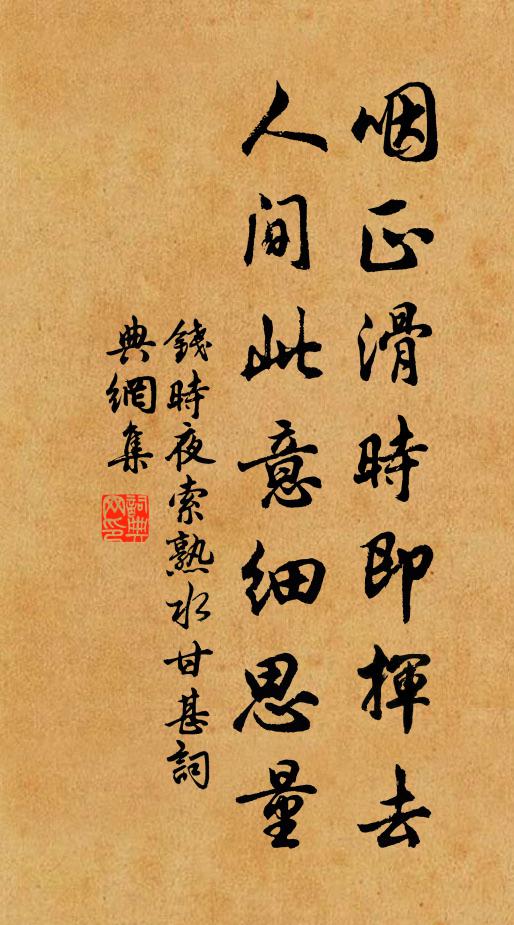 咽正滑時即揮去
人间此意細思量
錢時夜索熟水甘甚詞
典網集
詞典
网印